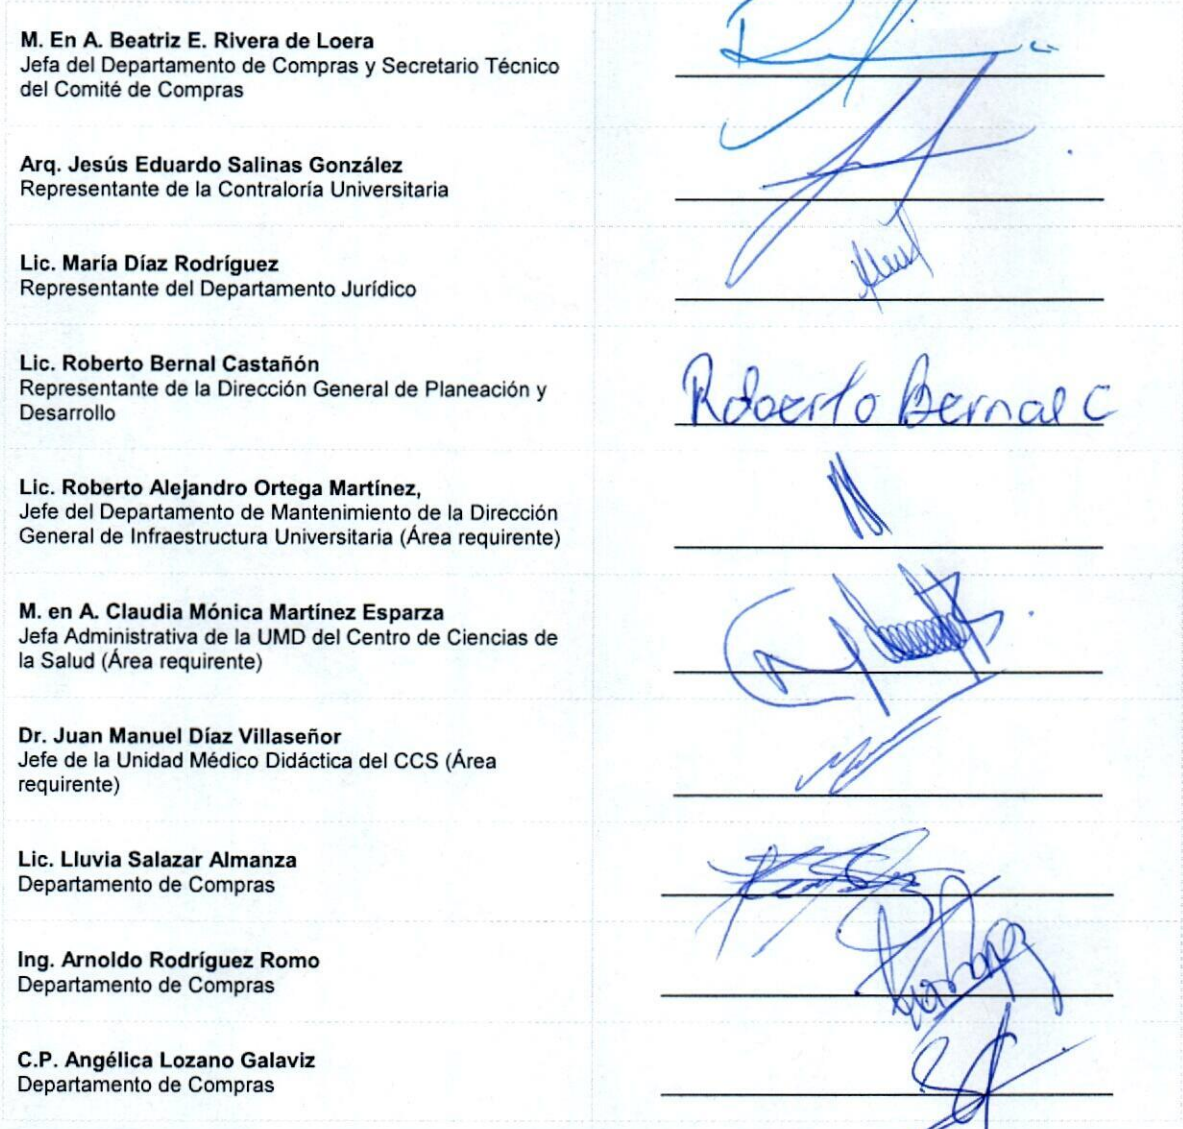 M. En A. Beatriz E. Rivera de Loera
Jefa del Departamento de Compras y Secretario Técnico
del Comité de Compras
Arq. Jesús Eduardo Salinas González
Representante de la Contraloría Universitaria
Lic. María Díaz Rodríguez
Representante del Departamento Jurídico
Lic. Roberto Bernal Castañón
Representante de la Dirección General de Planeación y
Desarrollo
Roberto Bernal C
Lic. Roberto Alejandro Ortega Martínez,
Jefe del Departamento de Mantenimiento de la Dirección
General de Infraestructura Universitaria (Área requirente)
M. en A. Claudia Mónica Martínez Esparza
Jefa Administrativa de la UMD del Centro de Ciencias de
la Salud (Área requirente)
Dr. Juan Manuel Díaz Villaseñor
Jefe de la Unidad Médico Didáctica del CCS (Área
requirente)
Lic. Lluvia Salazar Almanza
Departamento de Compras
Ing. Arnoldo Rodríguez Romo
Departamento de Compras
C.P. Angélica Lozano Galaviz
Departamento de Compras